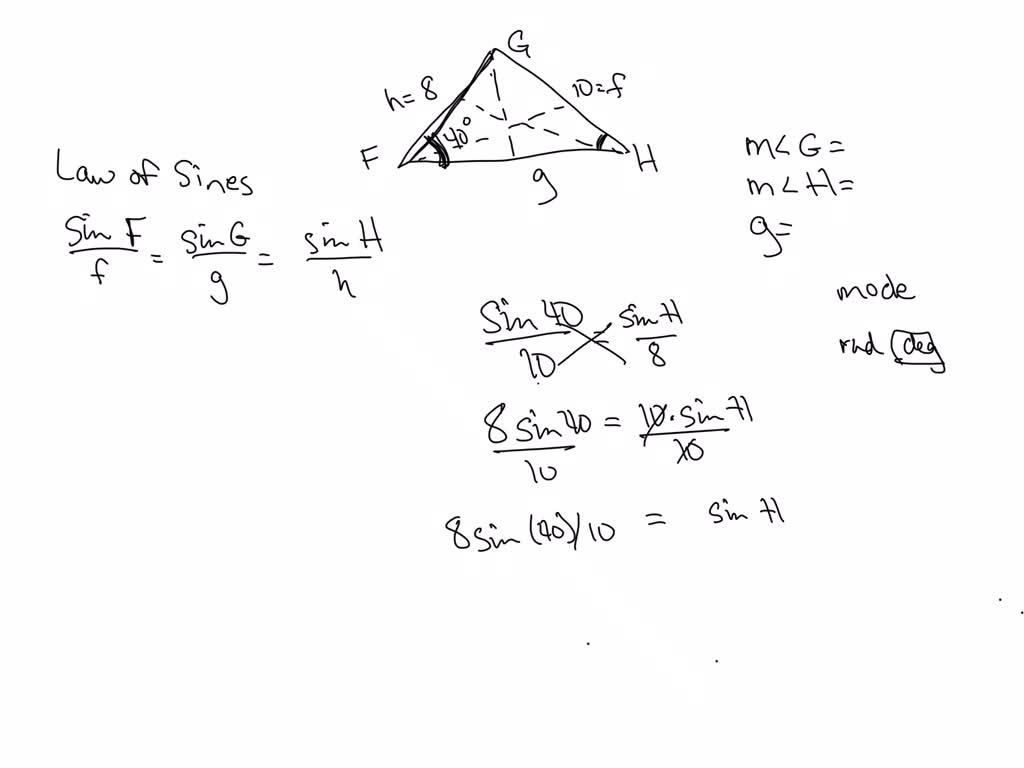 G
h = 8
10 = f
40°
F
H
g
Law of Sines
sin F / f = sin G / g = sin H / h
m< G =
m< H =
g =
mode
rad deg
sin 40 / 10 = sin H / 8
8 sin 40 / 10 = 10 · sin H / 10
8 sin (40) / 10 = sin H